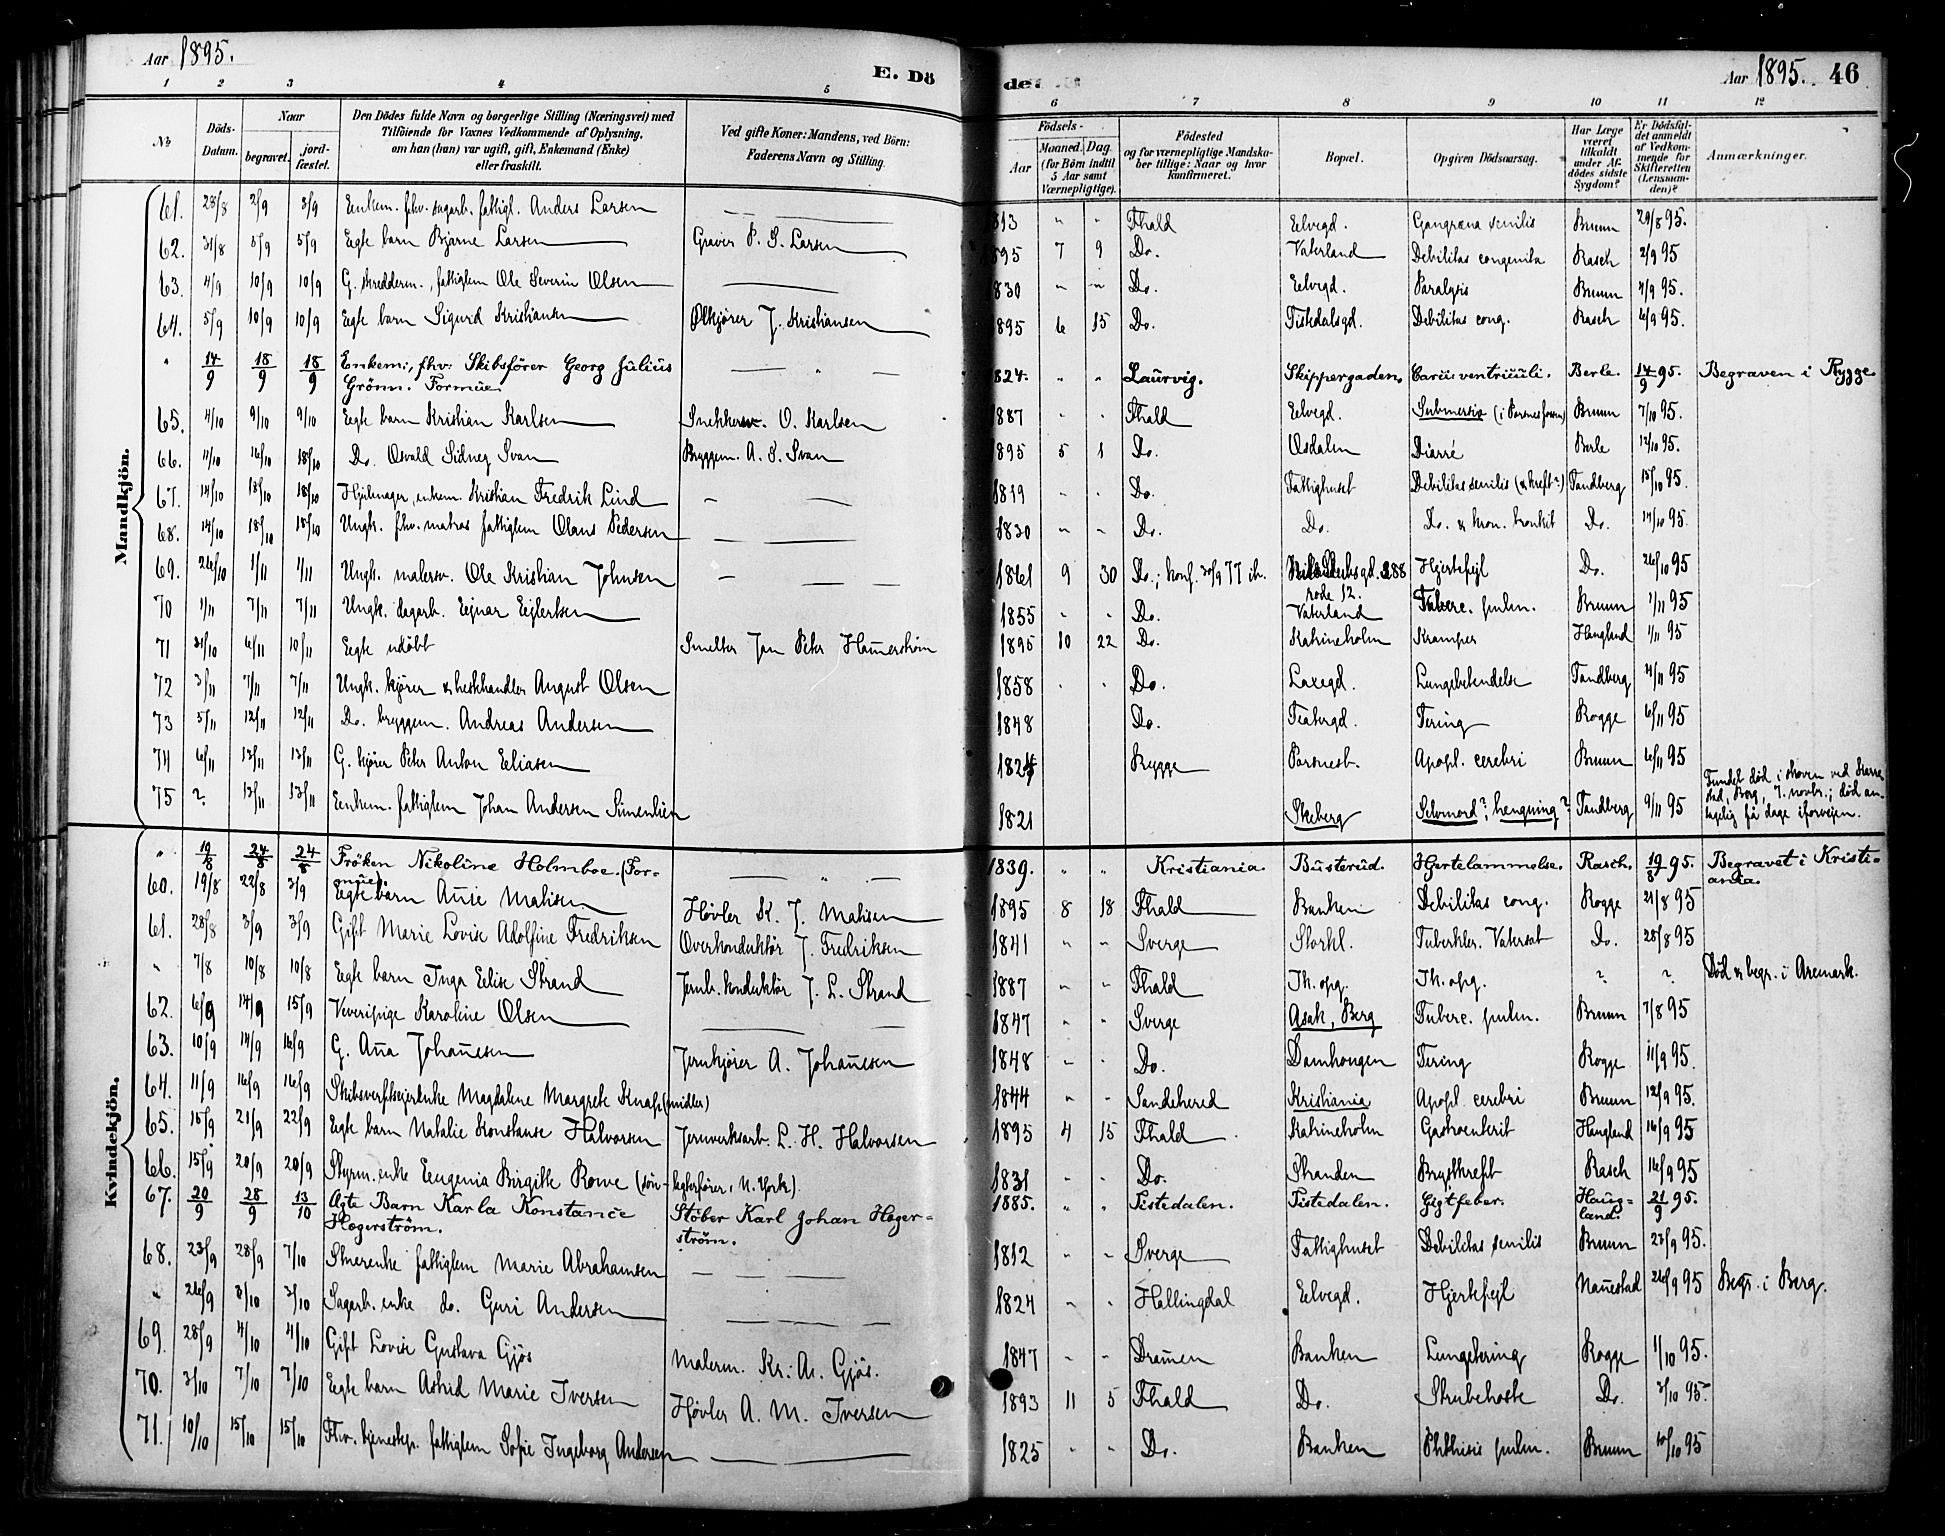 Aar 1895.
E. Dö
de.
Aar 1895. 46
1 2 3 4 5 6 7 8 9 10 11 12
No Döds-Datum. Naar begravet. jord-fæstet. Den Dödes fulde Navn og borgerlige Stilling (Næringsvei) med Tilföiende for Voxnes Vedkommende af Oplysning, om han (hun) var ugift, gift, Enkemand (Enke) eller fraskilt. Ved gifte Koner: Mandens, ved Börn: Faderens Navn og Stilling. Födsels- Aar Maaned. Dag. (for Börn indtil 5 Aar samt Værnepligtige). Födested og for værnepligtige Mandskaber tillige: Naar og hvor konfirmeret. Bopæl. Opgiven Dödsaarsag. Har Læge været tilkaldt under Afdödes sidste Sygdom? Er Dödsfaldet anmeldt af Vedkommende for Skifteretten (Lensmanden)? Anmærkninger.
Mandkjön.
61. 28/8 2/9 3/9 Enkem. fhv. sagarb. fattigl. Anders Larsen 1813 " " Fhald Eelvegd. Gangræna senilis Bruun 29/8 95.
62. 31/8 5/9 5/9 Egte barn Bjarne Larsen Graver P. S. Larsen 1895 7 9 Do. Vaterland Debilitas congenita Rasch 2/9 95
63. 4/9 10/9 10/9 G. skredderm., fattiglem Ole Severin Olsen 1830 " " Do. Eelvegd. Paralysis Bruun 4/9 95.
64. 5/9 10/9 10/9 Egte barn Sigurd Kristiansen Ølkjører J. Kristiansen 1895 6 15 Do. Tistedalsgd. Debilitas cong. Rasch 6/9 95.
" 14/9 18/9 18/9 Enkem., fhv. Skibsfører Georg Julius Grönn. Formue. — " — 1824. " " Laurvig. Skippergaden. Carcis ventriculi. Berle. 14/9 95. Begraven i Rygge
65. 4/10 9/10 9/10 Egte barn Kristian Karlsen Snekkersv. O. Karlsen 1887 " " Fhald Eelvegd. Submersio Bruun 7/10 95.
66. 11/10 16/10 18/10 Do. Osvald Sidney Svan Bryggem. A. S. Svan 1895 5 1 Do. Osdalen Diarré Berle 12/10 95.
67. 14/10 18/10 18/10 Hjulmager, enkem. Kristian Fredrik Lind 1819 " " Do. Fattighuset Debilitas senilis (& kreft?) Tandberg 15/10 95.
68. 14/10 18/10 18/10 Ungk. fhv. matros fattiglem Olaus Pedersen 1830 " " Do. Do. Do. & kron. bronkit Do. 14/10 95.
69. 26/10 1/11 1/11 Ungk. malersv. Ole Kristian Johnsen 1861 9 30 Do.; konf. 30/9 77 ib. rode 12. Hjertefejl Do. 26/10 95
70 1/11 7/11 7/11 Ungk. dagarb. Ejnar Ejlertsen 1855 " " Do. Vaterland Tuberc. pulm. Bruun 1/11 95
71 31/10 6/11 10/11 Egte udöbt Smelter Jan Peter Hamerström 1895 10 22 Do. Katrineholm Kramper Haugland 1/11 95
72 3/11 7/11 7/11 Ungk. kjører & hestehandler August Olsen 1858 " " Do. Laxegd. Lungebetendelse Tandberg 4/11 95
73 5/11 12/11 12/11 Do. bryggem. Andreas Andersen 1848 Do. Teatergd. Tering Rogge 6/11 95
74 6/11 13/11 13/11 G. kjører Peter Anton Eliasen 1824 Rygge Porsnesb. Apopl. cerebri Bruun 6/11 95
75 ?. 13/11 13/11 Enkem. fattiglem Johan Andersen 1821 Skeberg Selvmord?, hengning? Tandberg 9/11 95 Fundet død i skoven ved Berg, 7. novbr.; død antagelig få dage iforvejen.
Kvindekjön.
" 19/8 24/8 24/8 Fröken Nikoline Holmboe. (Formue). — " — 1839. " " Kristiania. Busterud. Hjertelammelse. Rasch. 19/8 95. Begravet i Kristiania.
60. 19/8 22/8 3/9 Egte barn Anie Matisen Høvler K. J. Matisen 1895 8 18 Fhald Banken Debilitas cong. Rogge 21/8 95
61. 28/8 3/9 3/9 Gift Marie Lovise Adolfine Fredriksen Overkonduktör J. Fredriksen 1841 " " Sverge Storkl. Tuberkler. Vatersot Do. 28/8 95
" 7/8 10/8 10/8 Egte barn Inga Elise Strand Jernb. konduktör J. L. Strand 1887 " " Fhald Ik. opg. Ik. opg. ? ? Død & begr. i Aremark.
62. 6/9 14/9 15/9 Veverpige Karoline Olsen 1847 " " Sverge Asak, Berg Tuberc. pulm. Bruun 7/8 95
63. 10/9 14/9 16/9 G. Ana Johanesen Jernkjører A. Johanesen 1848 " " Do. Damhougen Tering Rogge 11/9 95.
64. 11/9 16/9 16/9 Skibsverftsejerenke Magdalene Margrete Knap 1844 " " Sandehered Kristiania Apopl. cerebri Bruun 12/9 95.
65. 15/9 21/9 22/9 Egte barn Natalie Konstanse Halvorsen Jernverksarb. L. H. Halvorsen 1895 4 15 Fhald Katrineholm Gastroenterit Haugland 16/9 95
66. 15/9 20/9 20/9 Styrm. enke Eugenia Birgitte Rowe 1831 " " Do. Stranden Brystkreft Rasch 16/9 95
67. 20/9 28/9 13/10 Ægte Barn Karla Konstance Hægerström. Støber Karl Johan Hægerström. 1885. " " Tistedalen. Tistedalen. Gigtfeber. Haugland. 21/9 95.
68. 23/9 28/9 7/10 Stuerenke fattiglem Marie Abrahamsen 1812 " " Sverge Fattighuset Debilitas senilis Bruun 23/9 95.
" 26/9 2/10 3/10 Sagarb. enke do. Guri Andersen 1824 " " Hallingdal Eelvegd. Hjertefejl Nanestad 26/9 95 Begr. i Berg.
69. 28/9 4/10 4/10 Gift Lovise Gustava Gjøs Malerm. Kr. A. Gjøs. 1847 " " Dramen Banken Lungetering Rogge 1/10 95.
70. 3/10 7/10 7/10 Egte barn Astrid Marie Iversen Høvler A. M. Iversen 1893 11 5 Fhald Do. Strubehoste Do. 3/10 95
71. 10/10 15/10 15/10 Fhv. tjenestep. fattiglem Sofie Ingeborg Andersen 1825 " " Do. Banken Phthisis pulm. Bruun 10/10 95